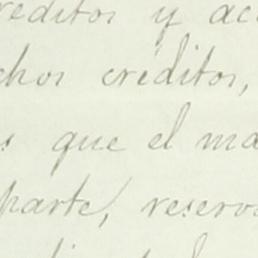 reditos y ac
chos creditos,
s que el ma
parte, reservo